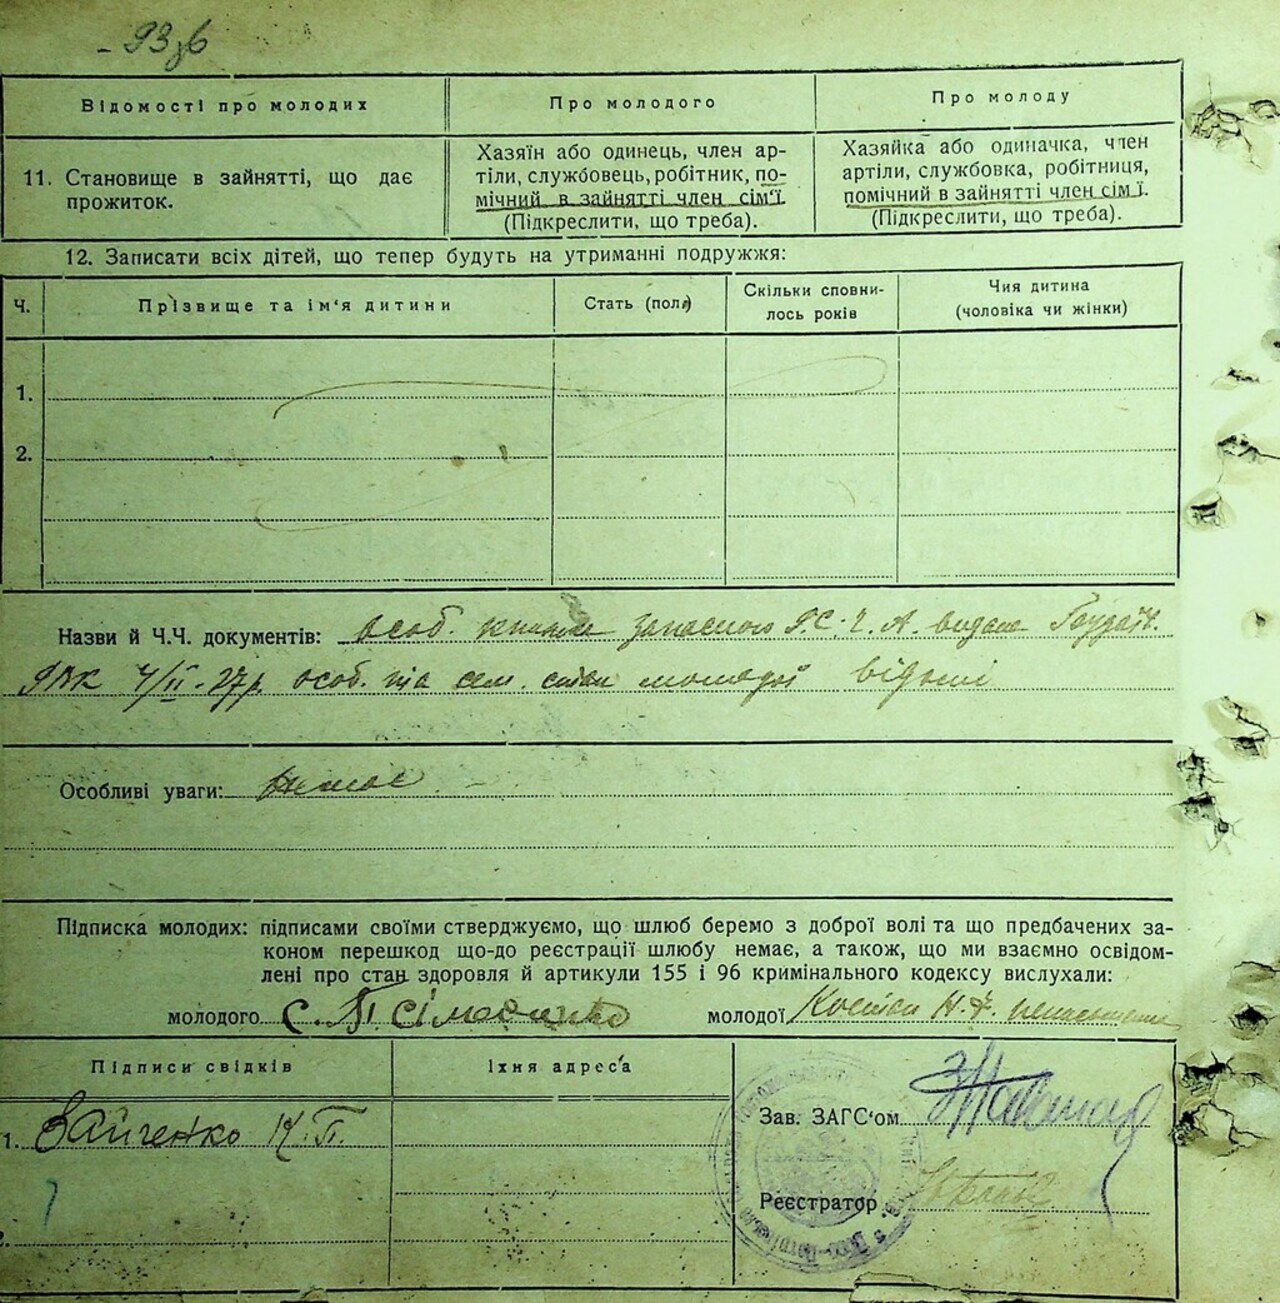 93зб
Відомості про молодих
Про молодого
Про молоду
11. Становище в зайнятті, що дає
прожиток.
Хазяїн або одинець, член ар-
тіли, службовець, робітник, по-
мічний в зайнятті член сім'ї.
(Підкреслити, що треба).
Хазяйка або одиначка, член
артіли, службовка, робітниця,
помічний в зайнятті член сім'ї.
(Підкреслити, що треба).
12. Записати всіх дітей, що тепер будуть на утриманні подружжя:
Ч.
Прізвище та ім'я дитини
Стать (пол)
Скільки сповни-
лось років
Чия дитина
(чоловіка чи жінки)
1.
2.
Назви й Ч.Ч. документів: особ. книжка запасного Р.С.Ч.А. видана
РВК 4/II-27р. особ. та сем. стан молодої відомі
Особливі уваги: немає
Підписка молодих: підписами своїми стверджуємо, що шлюб беремо з доброї волі та що предбачених за-
коном перешкод що-до реєстрації шлюбу немає, а також, що ми взаємно освідом-
лені про стан здоровля й артикули 155 і 96 кримінального кодексу вислухали:
молодого С. П.
молодої
Підписи свідків
Їхня адреса
1. Зайченко И. П.
2.
Зав. ЗАГС'ом
Реєстратор